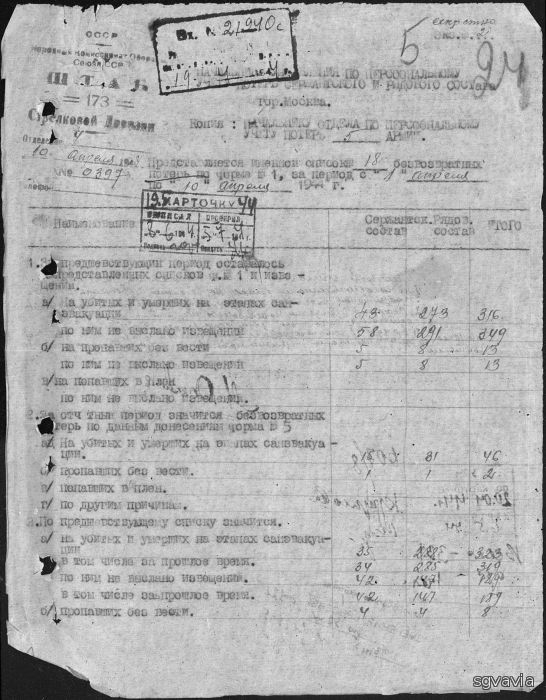 секретно
Экз. №
5
24
Вх. № 2/940с
СССР
Народный Комиссариат Обороны
Союза ССР
ШТАБ
173
Стрелковой Дивизии
Отделение 4
10 Апреля 194
№ 0397
ПО ПЕРСОНАЛЬНОМУ
УЧЕТУ ПОТЕРЬ СЕРЖАНТСКОГО И РЯДОВОГО СОСТАВА
гор. Москва.
Копия: НАЧАЛЬНИКУ ОТДЕЛА ПО ПЕРСОНАЛЬНОМУ
УЧЕТУ ПОТЕРЬ 5 АРМИИ.
Представляется именной список № 18 безвозвратных
потерь по форме № 1, за период с "1" апреля
по "10" апреля 1944 г.
КАРТОЧКУ
ВЫПИСАЛ ПРОВЕРИЛ
Наименование
Сержантск. Рядов. ИТОГО
состав состав
1. За предшествующий период осталось
представленных списков ф.№ 1 и изве-
щений.
а/ На убитых и умерших на этапах сан-
эвакуации 43 273 316
по ним не выслано извещений 58 291 349
б/ на пропавших без вести 5 8 13
по ним не выслано извещений 5 8 13
в/ на попавших в плен
по ним не выслано извещений.
2. За отчетный период значится безвозвратных
потерь по данным донесениям форма № 5
а/ На убитых и умерших на этапах санэвакуа-
ции. 31 46
б/ пропавших без вести. 1 1 2
в/ попавших в плен.
г/ по другим причинам.
3. По предшествующему списку значится.
а/ на убитых и умерших на этапах санэвакуа-
ции 35 323
в том числе за прошлое время. 34 285 319
по ним не выслано извещений. 42 147 189
в том числе за прошлое время. 42 147 189
б/ пропавших без вести. 4 4 8
sgvavia